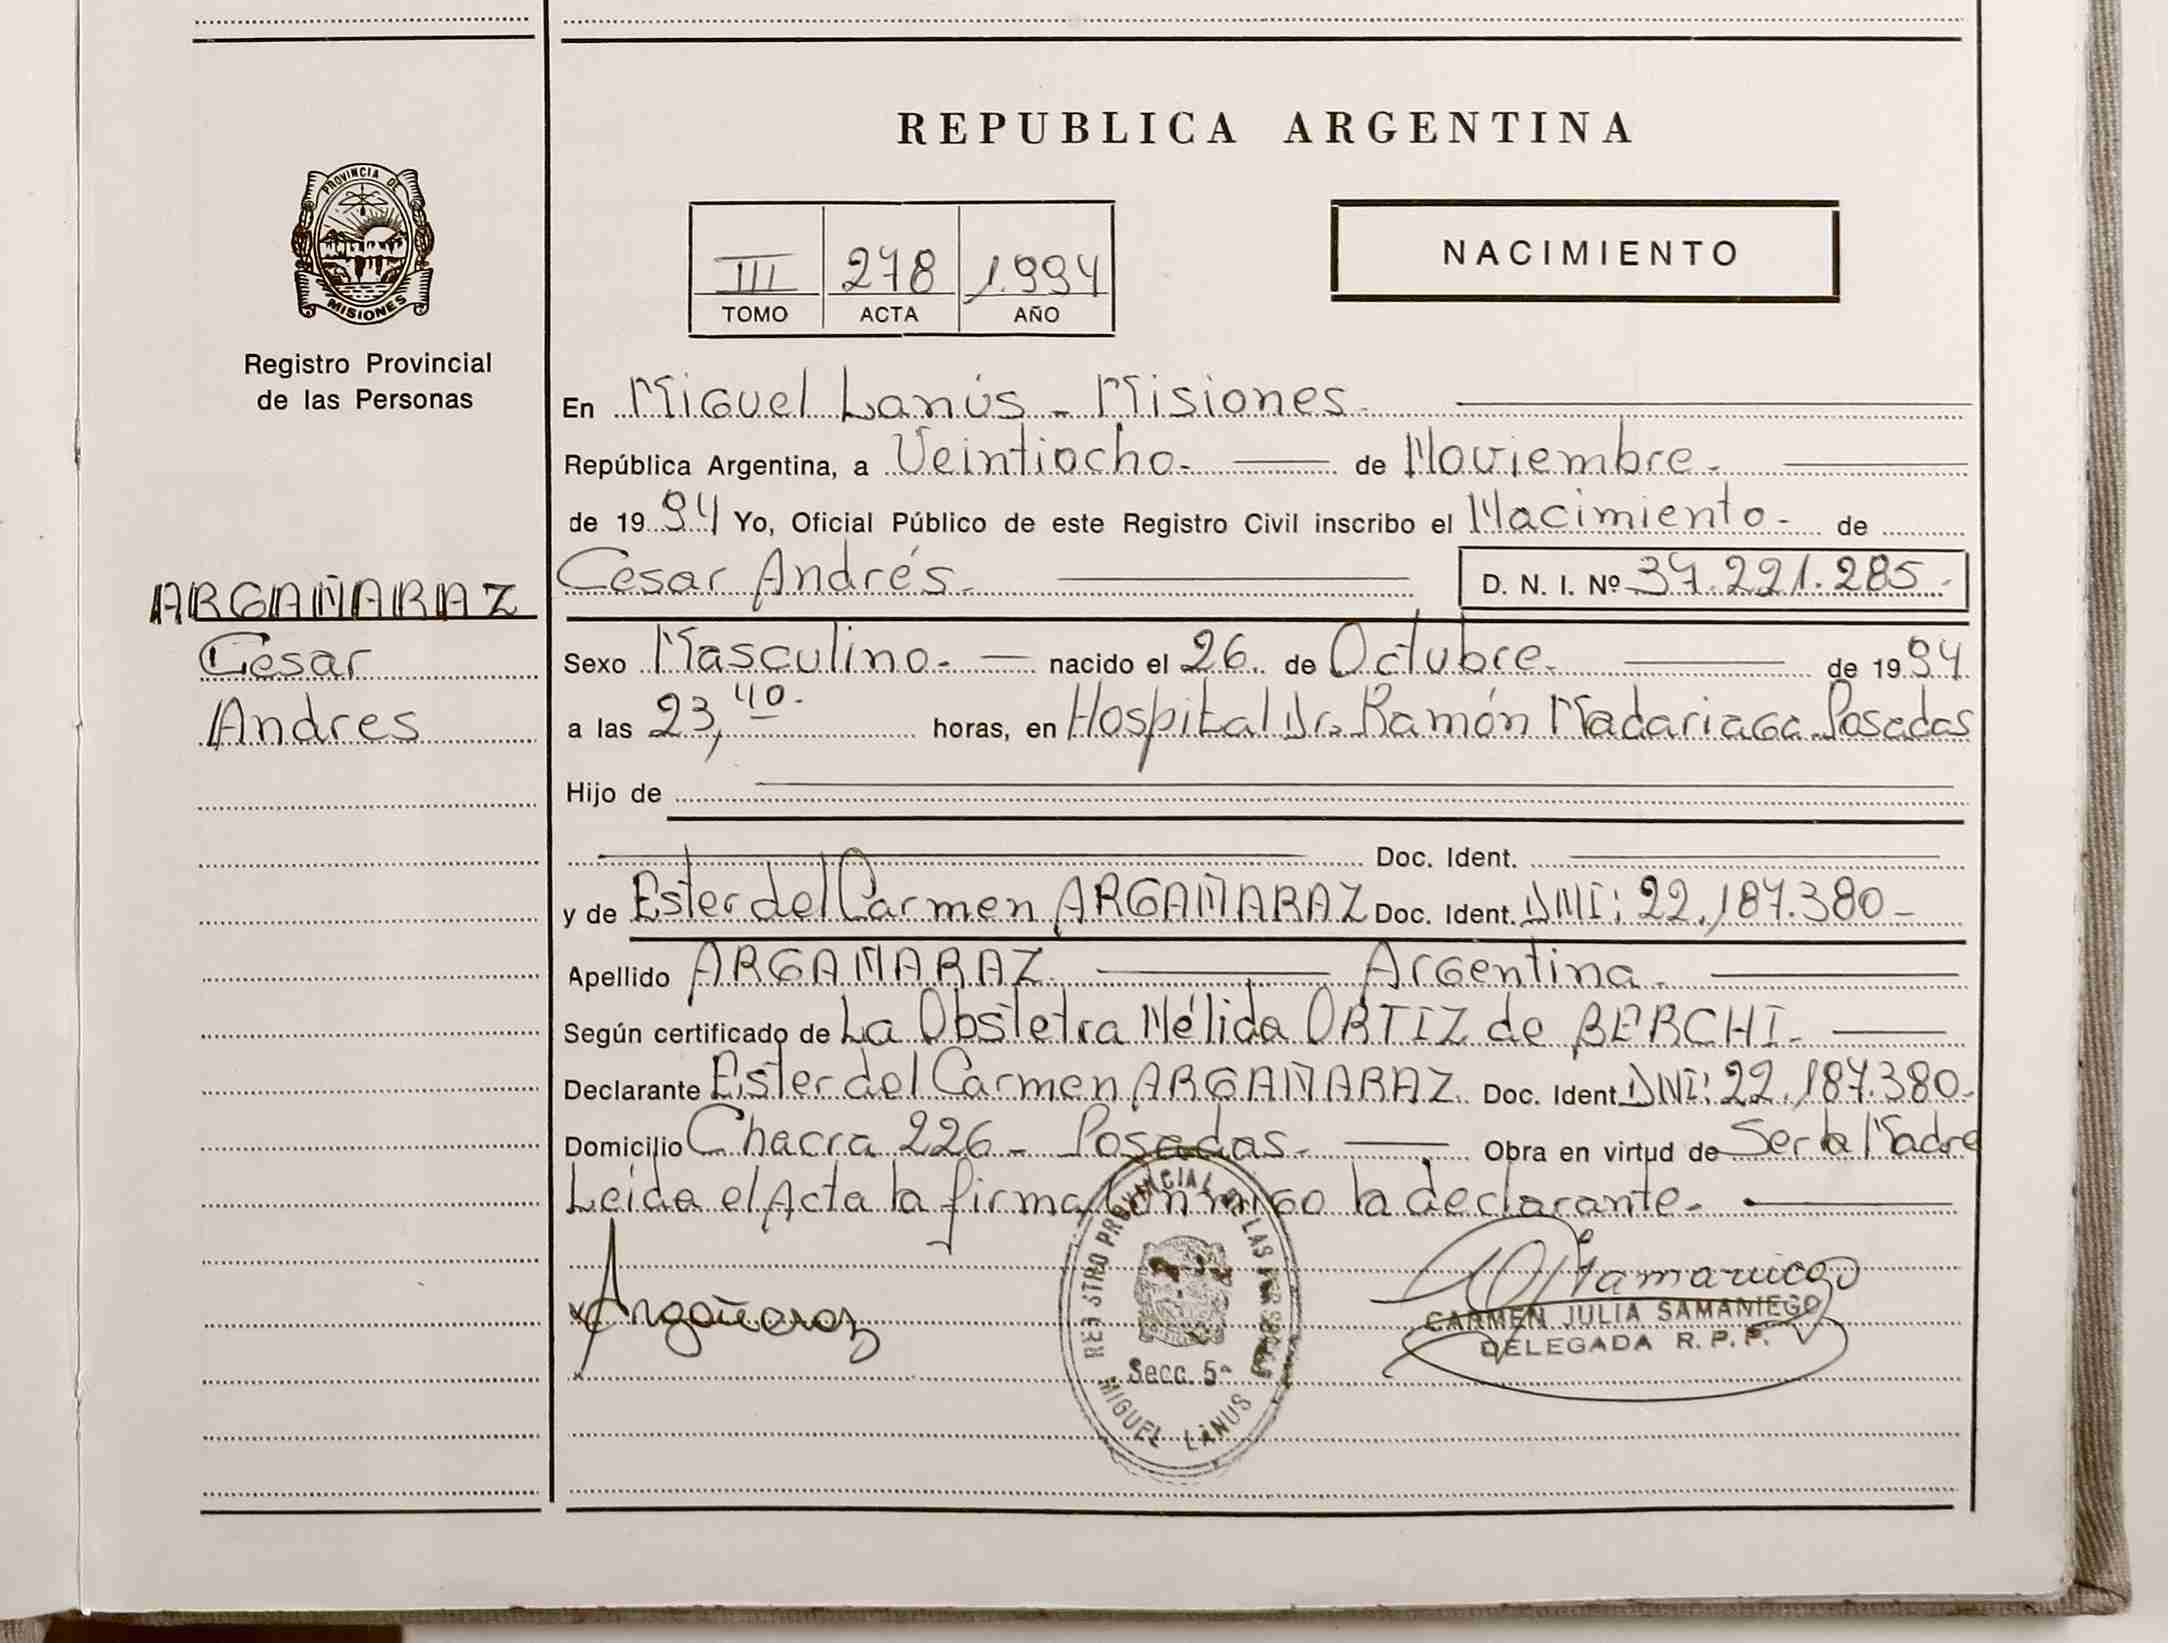 REPUBLICA ARGENTINA
PROVINCIA DE
MISIONES
Registro Provincial
de las Personas
III 278 1.994
TOMO ACTA AÑO
NACIMIENTO
En Miguel Lanús - Misiones.
República Argentina, a Veintiocho. de Noviembre.
de 1994 Yo, Oficial Público de este Registro Civil inscribo el Nacimiento. de
Cesar Andrés. D. N. I. Nº 37.221.285.
ARGAÑARAZ
Cesar
Andres
Sexo Masculino. nacido el 26 de Octubre. de 1994
a las 23,40. horas, en Hospital Dr. Ramón Madariaga Posadas
Hijo de
Doc. Ident.
y de Ester del Carmen ARGAÑARAZ Doc. Ident. DNI: 22.187.380-
Apellido ARGAÑARAZ Argentina.
Según certificado de La Obstetra Nélida ORTIZ de BERCHI.
Declarante Ester del Carmen ARGAÑARAZ. Doc. Ident. DNI: 22.187.380-
Domicilio Chacra 226 - Posadas. Obra en virtud de Ser la Madre
Leida el Acta la firma Conmigo la declarante.
Argañaraz
REGISTRO PROVINCIAL DE LAS PERSONAS
Secc. 5ª
MIGUEL LANUS
CARMEN JULIA SAMANIEGO
DELEGADA R. P. P.